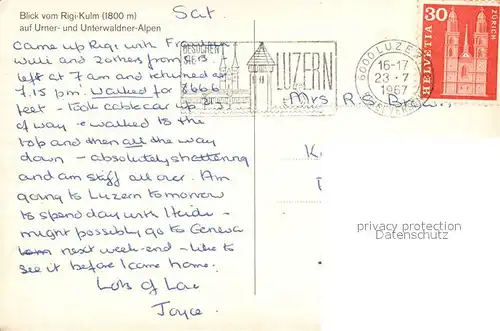 Blick vom Rigi-Kulm (1800 m)
auf Urner- und Unterwaldner-Alpen
Sat
Came up Rigi with
Willi and 2 others from
left at 7 am and returned at
7.15 pm. Walked for 8666
feet - took cable car up
of way - walked to the
top and then all the way
down - absolutely shattering
and am stiff all over. Am
going to Luzern tomorrow
to spend day with Heidi -
might possibly go to Geneva
next week-end - like to
see it before I came home.
Lots of Love
Joyce.
BESUCHEN
SIE
LUZERN
6000 LUZERN
16-17
23.-7
1967
30
HELVETIA
ZÜRICH
Mrs R.G. Brow
privacy protection
Datenschutz